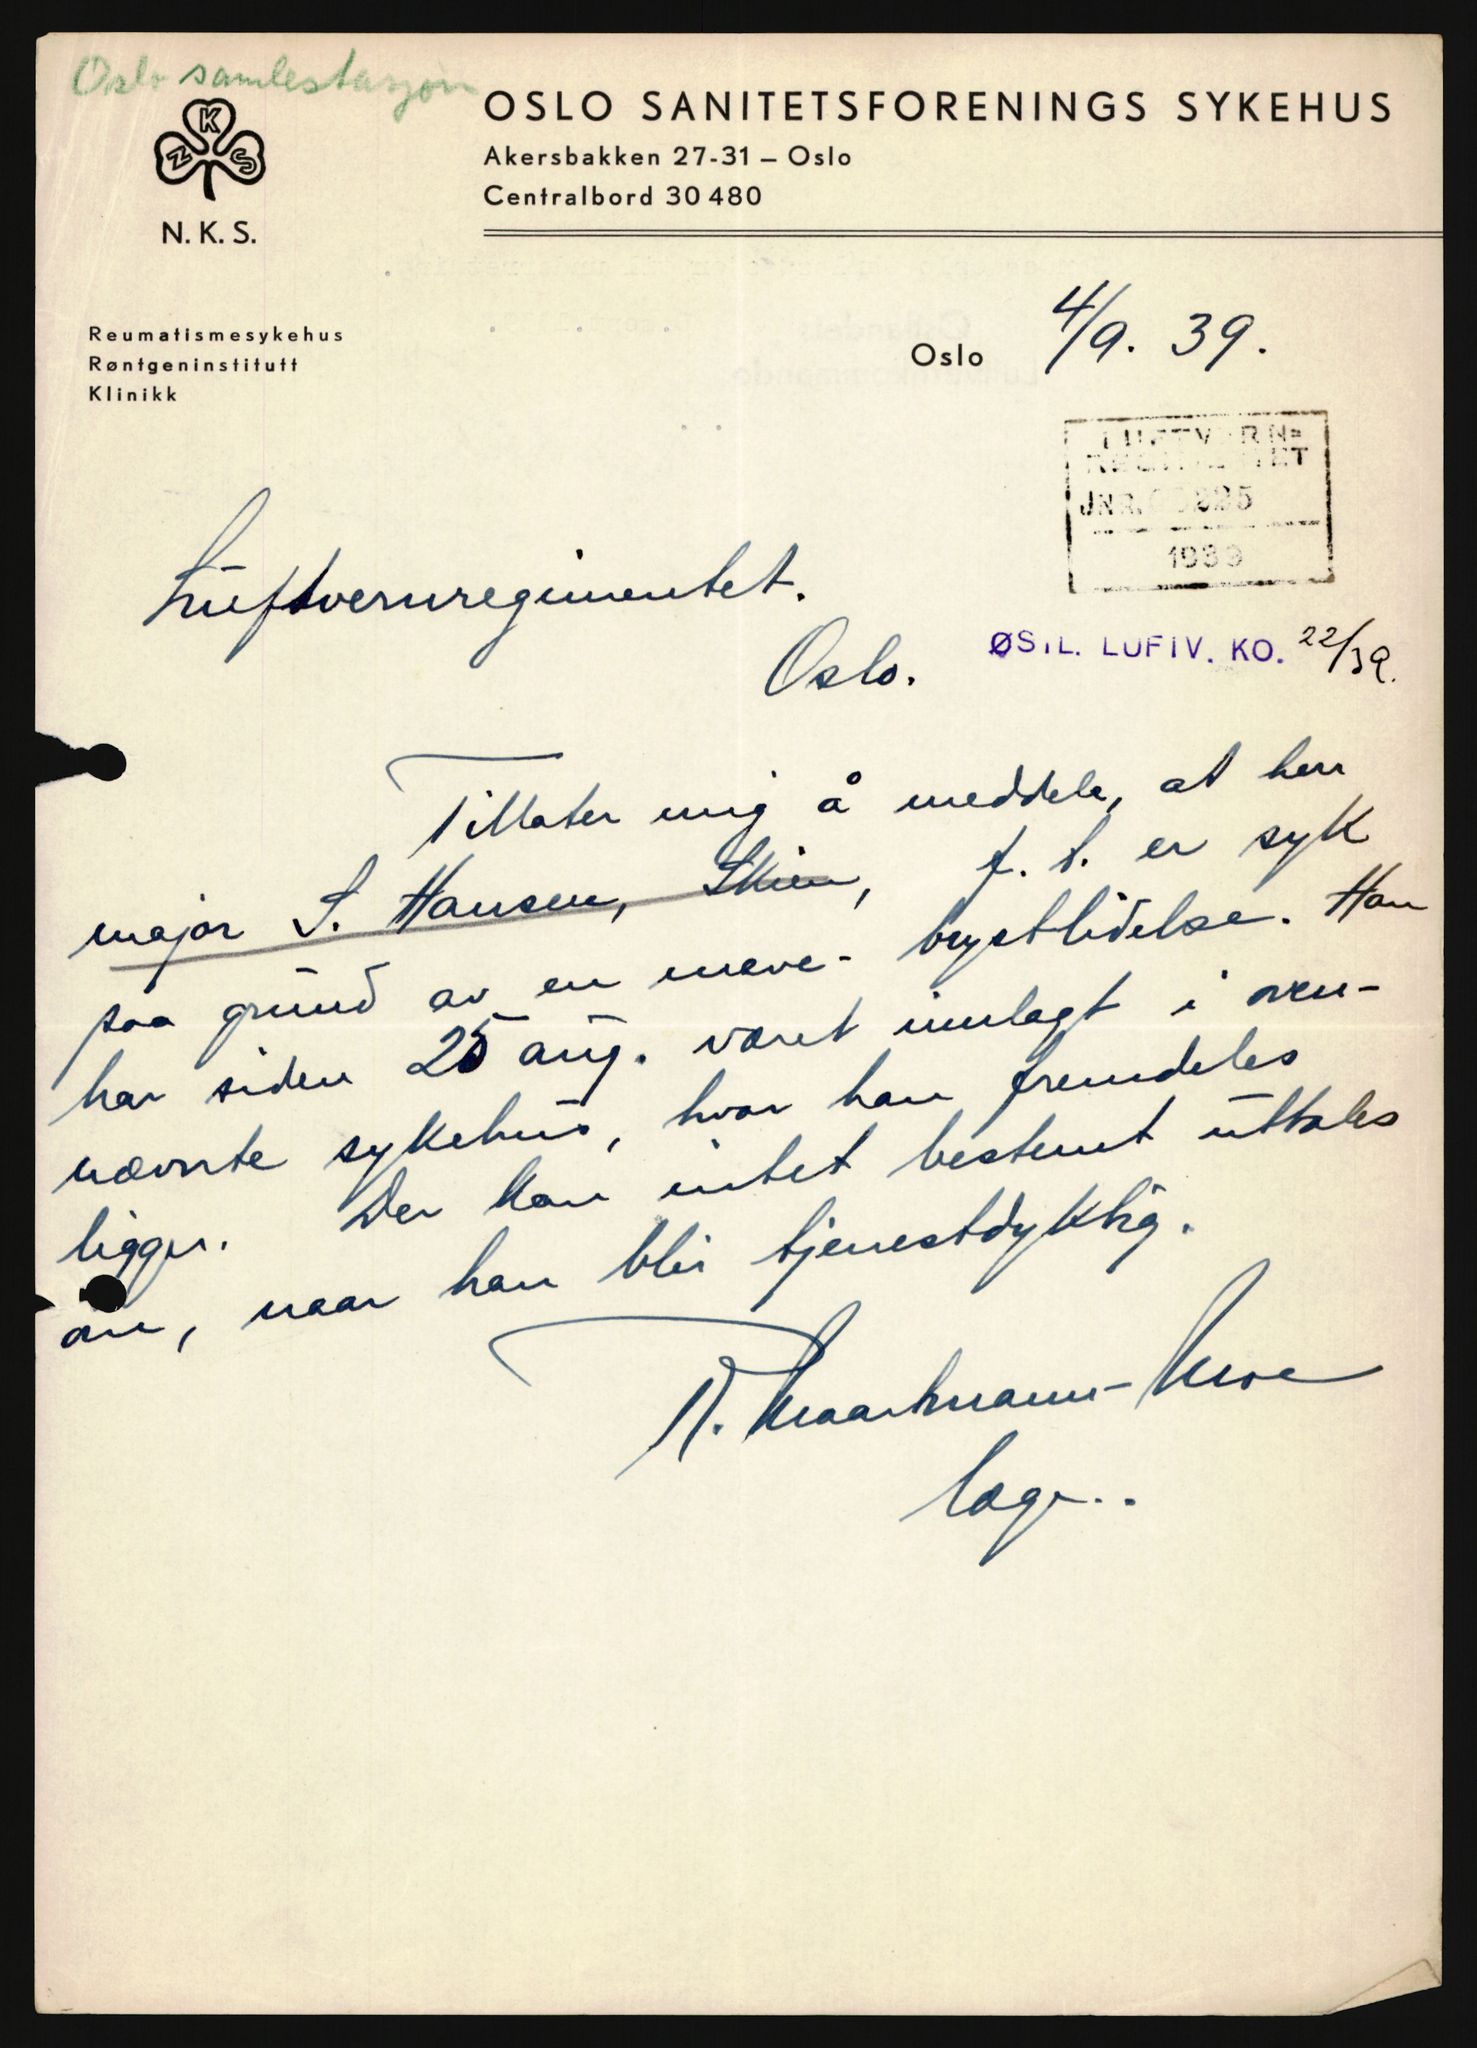 Oslo samlestasjon
OSLO SANITETSFORENINGS SYKEHUS
Akersbakken 27-31 – Oslo
Centralbord 30 480
K
N S
N. K. S.
Reumatismesykehus
Røntgeninstitutt
Klinikk
Oslo 4/9. 39.
LUFTVERN=
REGIMENTET
JNR.
1939
Luftvernregimentet.
Oslo.
ØSTL. LUFTV. KO. 22/39.
Tillater mig å meddele, at herr
major S. Hansen, Skien, f. t. er syk
paa grund av en mave- brystlidelse. Han
har siden 25 aug. været innlagt i oven-
nævnte sykehus, hvor han fremdeles
ligger. Der kan intet bestemt uttales
om, naar han blir tjenestdyktig.
Kraarhmann-Moe
læge..